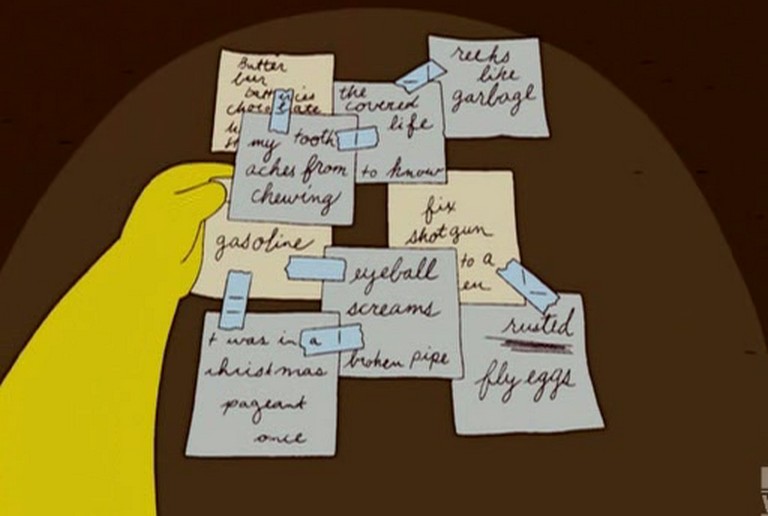 Butter
chocolate
the
covered
life
to know
reeks
like
garbage
my tooth
aches from
chewing
gasoline
fix
shotgun
to a
eyeball
screams
broken pipe
rusted
fly eggs
t was in a
christmas
pageant
once